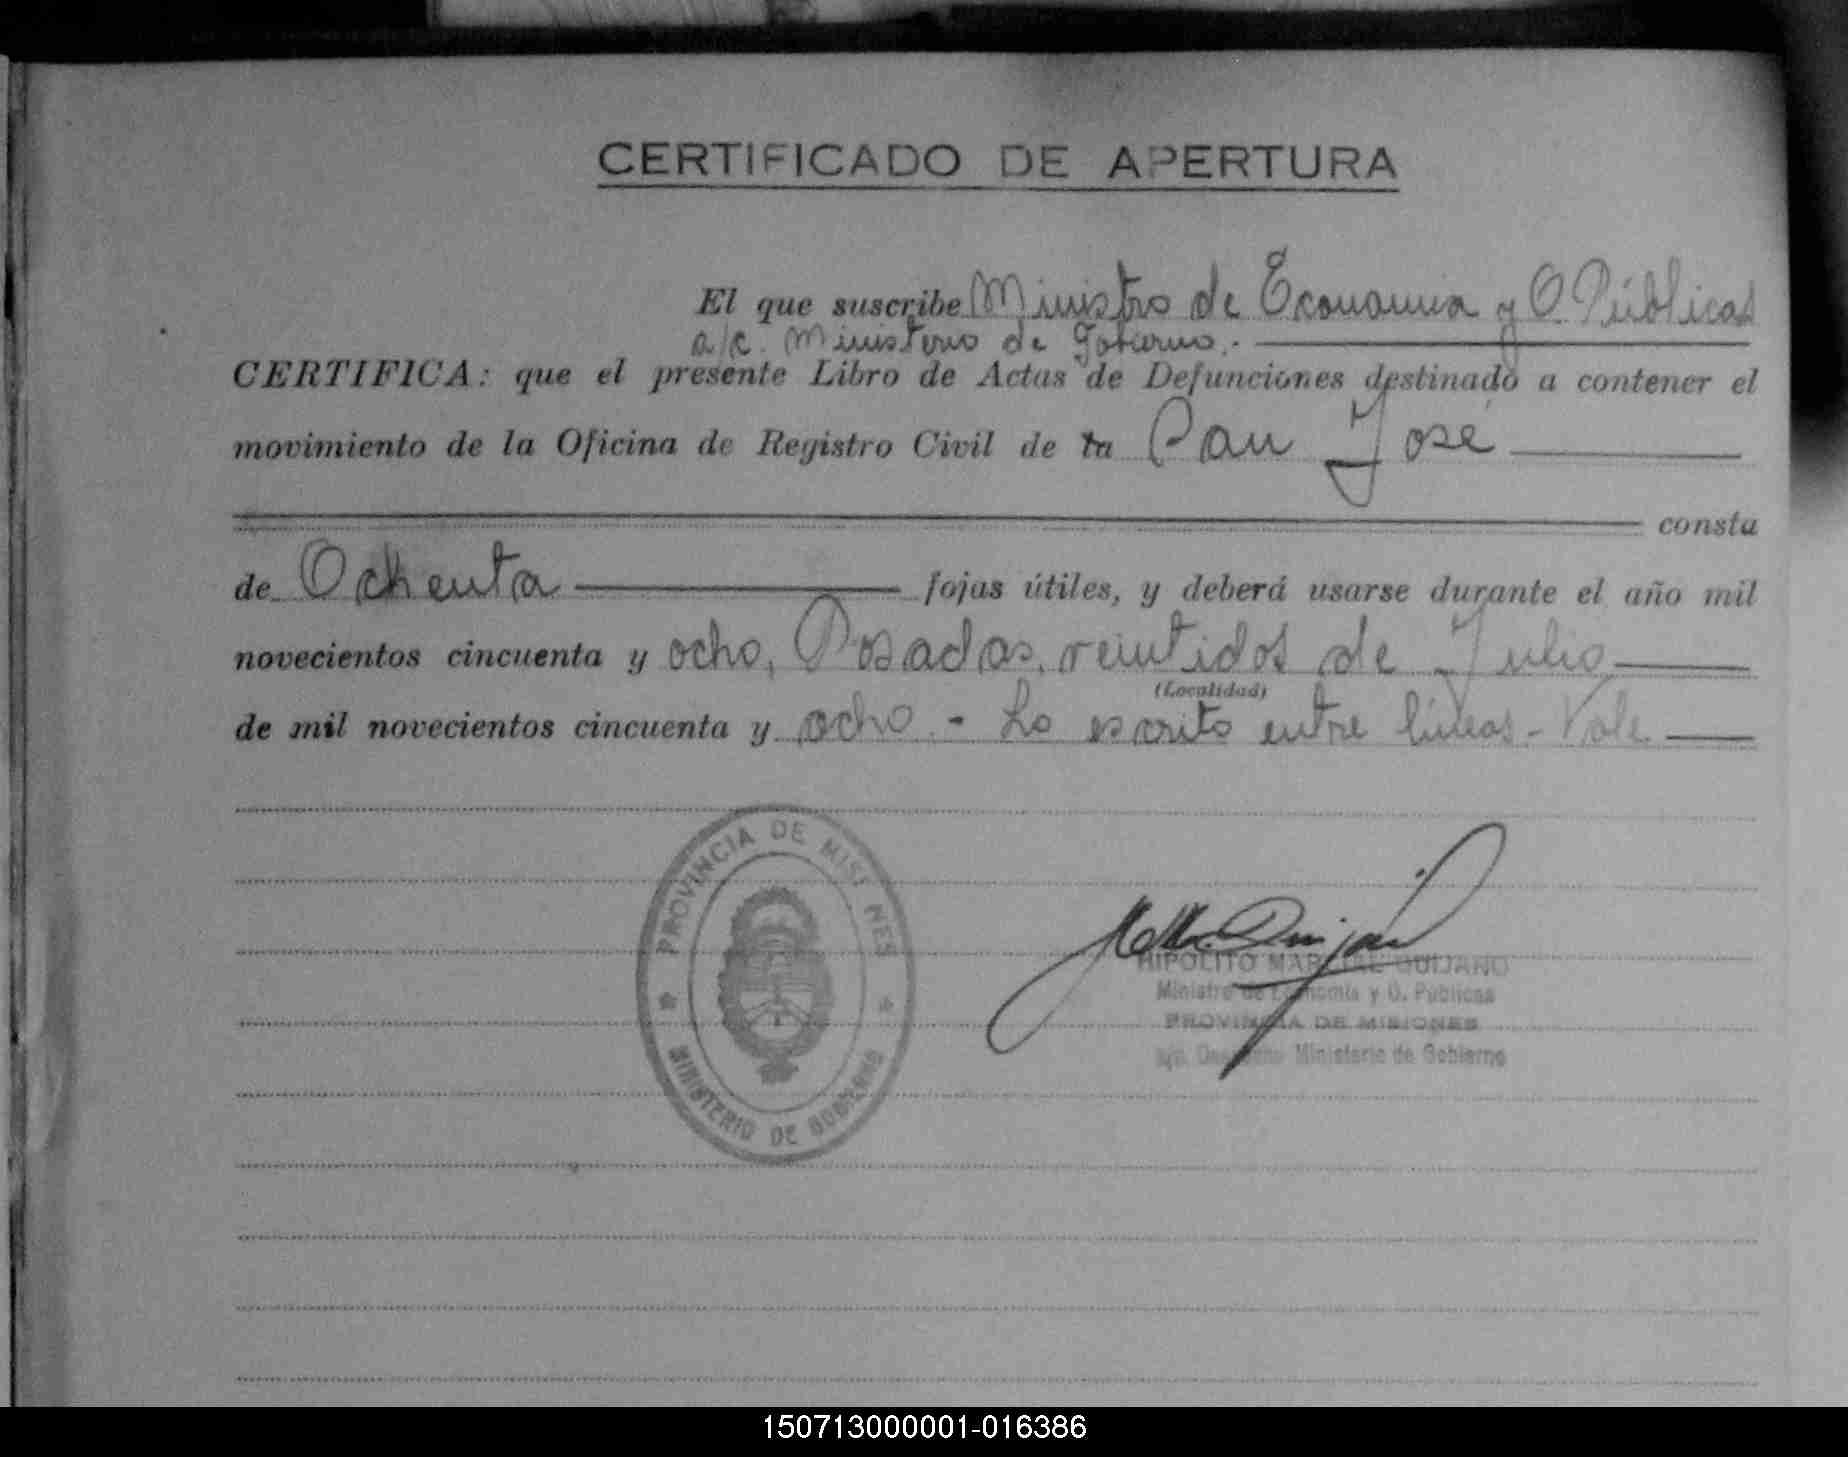 CERTIFICADO DE APERTURA
El que suscribe Ministro de Economia y O. Públicas
a/c. Ministerio de Gobierno.-
CERTIFICA: que el presente Libro de Actas de Defunciones destinado a contener el
movimiento de la Oficina de Registro Civil de la San José
consta
de Ochenta fojas útiles, y deberá usarse durante el año mil
novecientos cincuenta y ocho, Posadas, veintidos de Julio
(Localidad)
de mil novecientos cincuenta y ocho.- Lo escrito entre líneas - Vale
PROVINCIA DE MISIONES
MINISTERIO DE GOBIERNO
HIPOLITO MARCIAL GUIJANO
Ministro de Economía y O. Públicas
PROVINCIA DE MISIONES
Ministerio de Gobierno
150713000001-016386